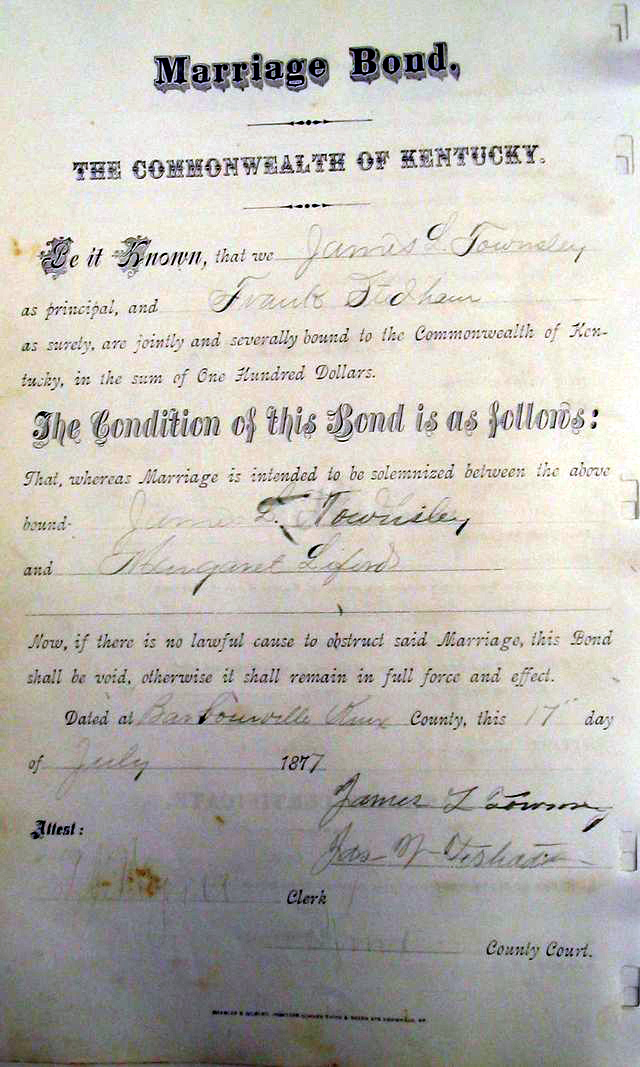 Marriage Bond.
THE COMMONWEALTH OF KENTUCKY.
Be it Known, that we James L. Townsley
as principal, and Frank Stedham
as surety, are jointly and severally bound to the Commonwealth of Ken-
tucky, in the sum of One Hundred Dollars.
The Condition of this Bond is as follows:
That, whereas Marriage is intended to be solemnized between the above
bound- James L. Townsley
and Margaret Liford
Now, if there is no lawful cause to obstruct said Marriage, this Bond
shall be void, otherwise it shall remain in full force and effect.
Dated at Barbourville Knox County, this 17" day
of July 1877
James L
Attest: Jas W
Clerk
County Court.